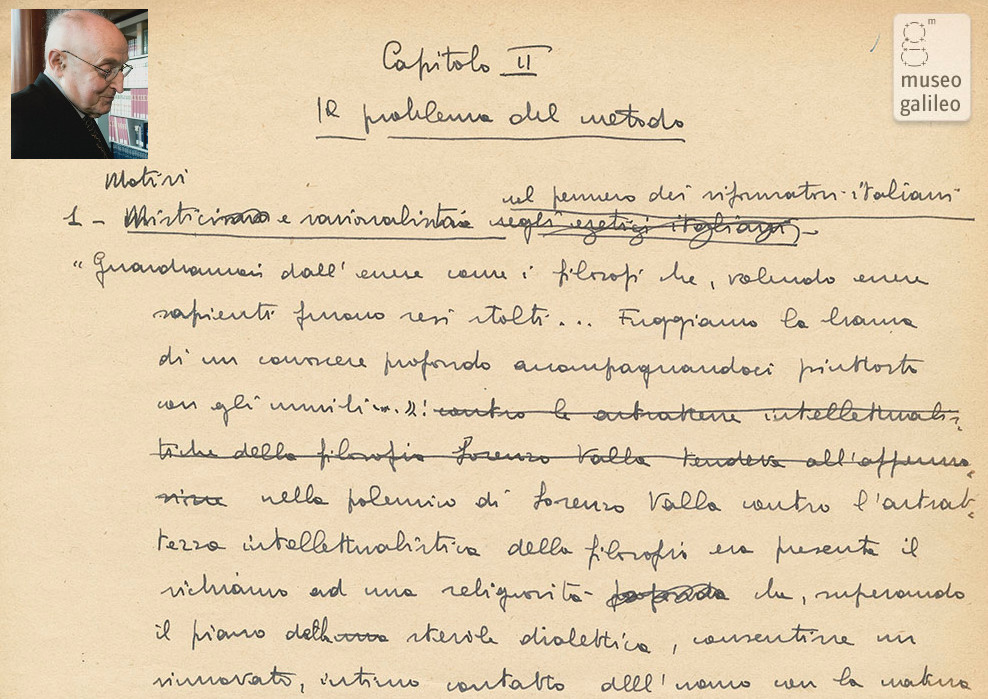 museo
galileo
Capitolo II
Il problema del metodo
Motivi
nel pensiero dei riformatori italiani
1 - Misticismo e razionalistai negli esegeti italiani -
"Guardiamoci dall'essere come i filosofi che, volendo essere
sapienti furono resi stolti... Fuggiamo la brama
di un conoscere profondo accompagnandoci piuttosto
con gli umili...": contro le astrattezze intellettualis-
tiche della filosofia Lorenzo Valla tendeva all'afferma-
zione nella polemica di Lorenzo Valla contro l'astrat-
tezza intellettualistica della filosofia era presente il
richiamo ad una religiosità profonda che, superando
il piano della sterile dialettica, consentisse un
rinnovato, intimo contatto dell'uomo con la materia